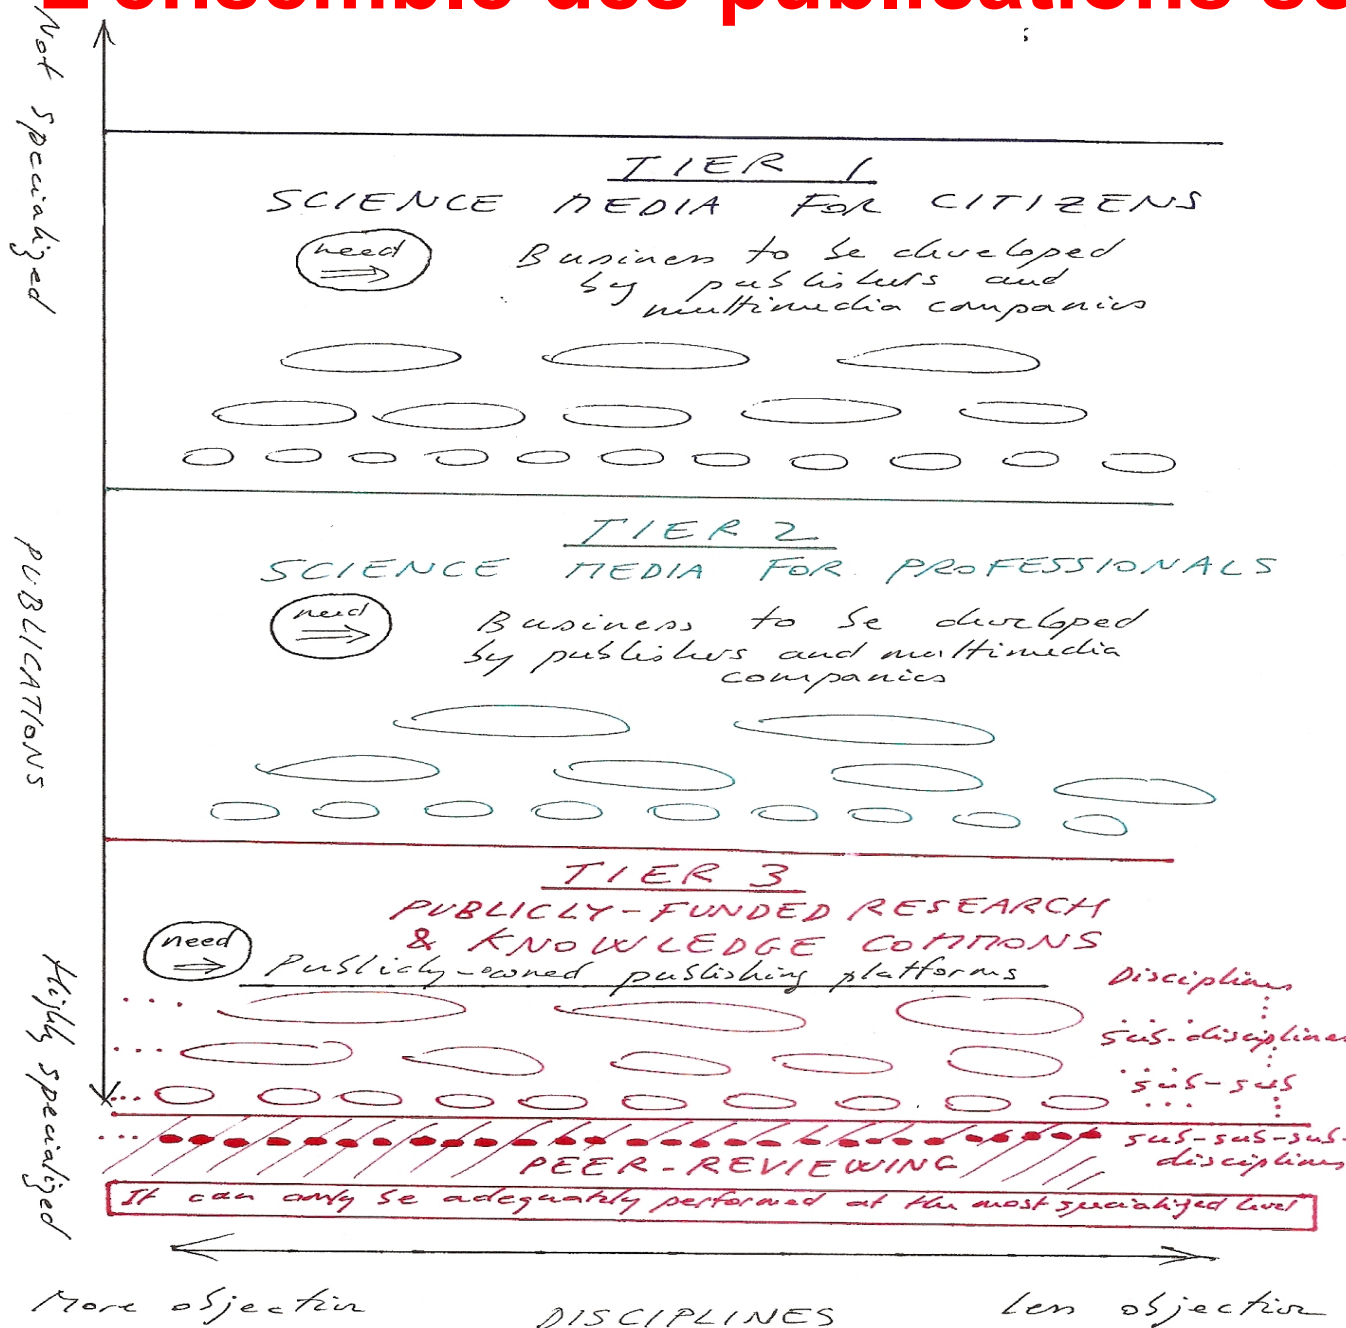 L'ensemble des publications sc
Not specialized
TIER 1
SCIENCE MEDIA FOR CITIZENS
need
Business to be developed
by publishers and
multimedia companies
PUBLICATIONS
TIER 2
SCIENCE MEDIA FOR PROFESSIONALS
need
Business to be developed
by publishers and multimedia
companies
Highly specialized
TIER 3
PUBLICLY-FUNDED RESEARCH
& KNOWLEDGE COMMONS
need
Publicly-owned publishing platforms
Disciplines
sub-disciplines
sub-sub
sub-sub-sub-
disciplines
PEER-REVIEWING
It can only be adequately performed at the most specialized level
More objective
DISCIPLINES
Less objective